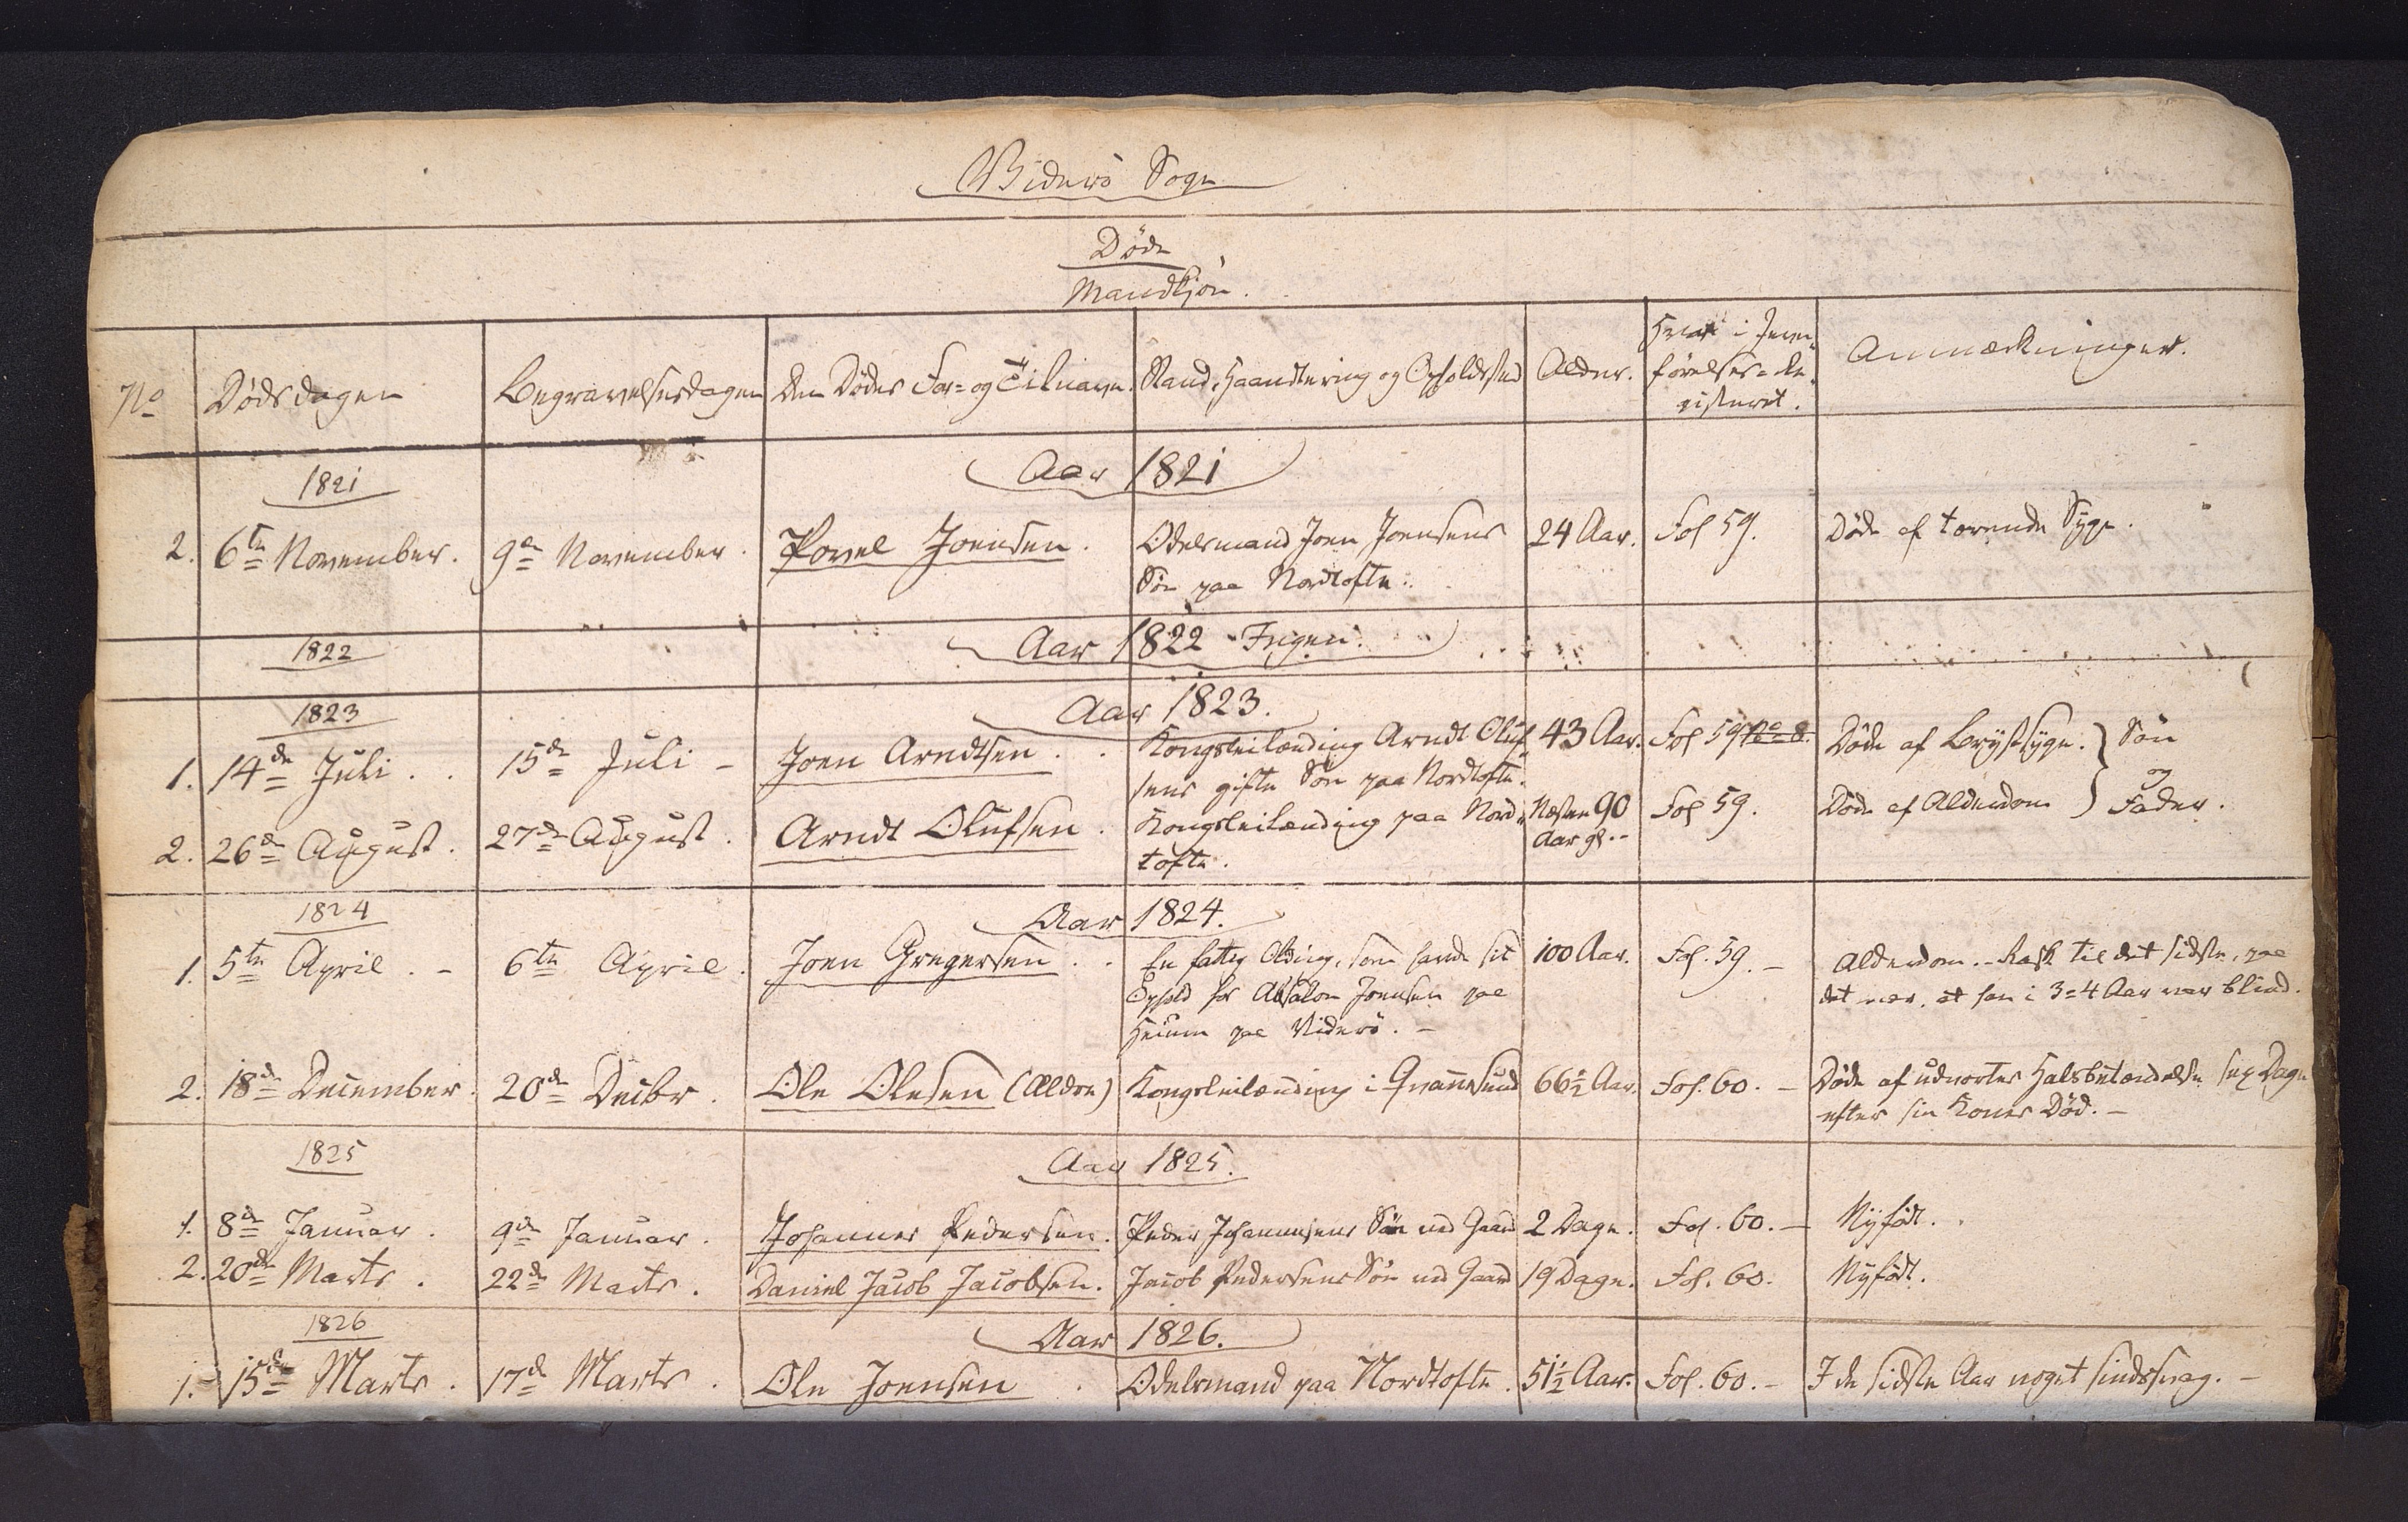 Viderö Sogn
Döde
Mandkjön.
No
Dødsdagen
Begravelsesdagen
Den Dödes For- og Tilnavn.
Stand, Haandtering og Opholdssted
Alder.
Hvor i Jevn-
förelses-Re-
gisteret.
Anmærkninger.
1821
Aar 1821
2. 6te November. 9de November. Povel Joensen. Odelsmand Joen Joensens 24 Aar. Fol 59. Döde af tærende Syge.
Sön paa Nordtofte.
1822
Aar 1822 Ingen.
1823
Aar 1823.
1. 14de Juli. 15de Juli - Joen Arndtsen. Kongsleilænding Arndt Oluf- 43 Aar. Fol 59 No 8. Döde af Brystsyge. Sön
sens gifte Sön paa Nordtofte. og
2. 26de August. 27de August. Arndt Olufsen. Kongsleilænding paa Nord- Næsten 90 Fol 59. Döde af Alderdom Fader.
tofte. Aar gl.-
1824
Aar 1824.
1. 5te April. - 6te April. Joen Gregersen. En fattig Olding, som havde sit 100 Aar. Fol. 59. - Alderdom. - Rask til det sidste, paa
Ophold hos Absalon Joensen paa det nær, at han i 3-4 Aar var blind.
paa Viderö. -
2. 18de December. 20de Decbr. Ole Olesen (Ældre) Kongsleilænding i Qvannesund 66½ Aar. Fol. 60. - Döde af udvortes Halsbetændelse sex Dage
efter sin Kones Död. -
1825
Aar 1825.
1. 8de Januar. 9de Januar. Johannes Pedersen. Peder Johannesens Sön ved Gaard 2 Dage. Fol. 60. - Nyfödt.
2. 20de Marts. 22de Marts. Daniel Jacob Jacobsen. Jacob Pedersens Sön ved Gaard 19 Dage. Fol. 60. Nyfödt.
1826
Aar 1826.
1. 15de Marts. 17de Marts. Ole Joensen. Odelsmand paa Nordtofte. 51½ Aar. Fol. 60. - I de sidste Aar noget sindssvag. -